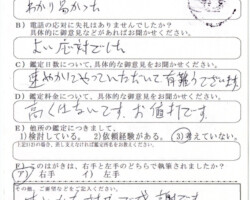 わかり易かった
B）電話の応対に失礼はありませんでしたか？
具体的に御意見などがあればお聞かせください。
よい応対でした
C）鑑定日数について、具体的な御意見をお聞かせください。
速やかにやっていただいて有難うございます
D）鑑定料金について、具体的な御意見をお聞かせください。
高くはないです、お値打です。
E）他所の鑑定につきまして。
1)検討している。 2)依頼経験がある。 3)考えていない。
F）このはがきは、右手と左手のどちらで執筆されましたか？
ア）右手 イ）左手
その他、ご要望などをご記入ください。